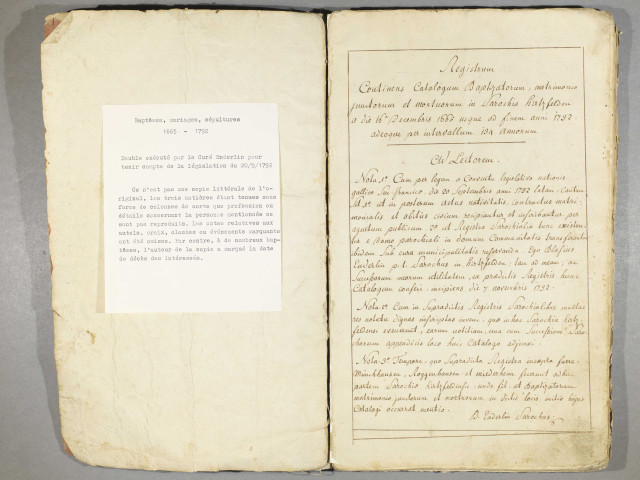 Baptêmes, mariages, sépultures
1665 - 1792
Double exécuté par le Curé Enderlin pour
tenir compte de la législation du 20/9/1792
Ce n'est pas une copie littérale de l'o-
riginal, les trois matières étant tenues sous
forme de colonnes de sorte que profession et
détails concernant la personne mentionnée ne
sont pas reproduits. Les notes relatives aux
autels, croix, cloches ou événements marquants
ont été omises. Par contre, à de nombreux bap-
têmes, l'auteur de la copie a marqué la date
de décès des intéressés.
Registrum
Continens Catalogum Baptizatorum, matrimonio
junctorum et mortuorum in Parochia hirtzfelden
a die 16 Decembris usque ad finem anni 1792.
adeoque per intervallum 134 annorum.
Ad Lectorem.
Nota 1° Cum per legem a Consessu legislativo nationis
gallicae seu francicae, die 20 Septembris anni 1792 latam, Cautum
sit, ut in posterum actus nativitatis, contractus matri-
monialis et obitus civium recipiantur et inscribantur per
agentum publicum, et Registra Parochialia hunc existen-
tia e Domo parochiali in domum Communitatis transferantur
ibidem sub cura municipalitatis asservanda. Ego Blasius
Enderlin p.t. Parochus in hirtzfelden, tam ad meam, ac
Successorum meorum utilitatem, ex praedictis Registris hunc
Catalogum confeci, incipiens die 7 novembris 1792.
Nota 2° Cum in Supradictis Registris Parochialibus multas
res notatu dignas inscriptas inveni, quae in hac Parochia hirtz-
feldensi evenerunt, earum notitiam, una cum Successione Paro-
chorum appendicis loco huic Catalogo adjunxi.
Nota 3° Tempore, quo Supradicta Registra incepta fuere
Münckhausen, Roggenhausen et niederhem fuerunt adhuc
partem Parochiae hirtzfeldensis, unde fit, ut Baptizatorum
matrimonio junctorum et mortuorum in dictis locis, initio hujus
Catalogi occurrat mentio.
B. Enderlin Parochus.